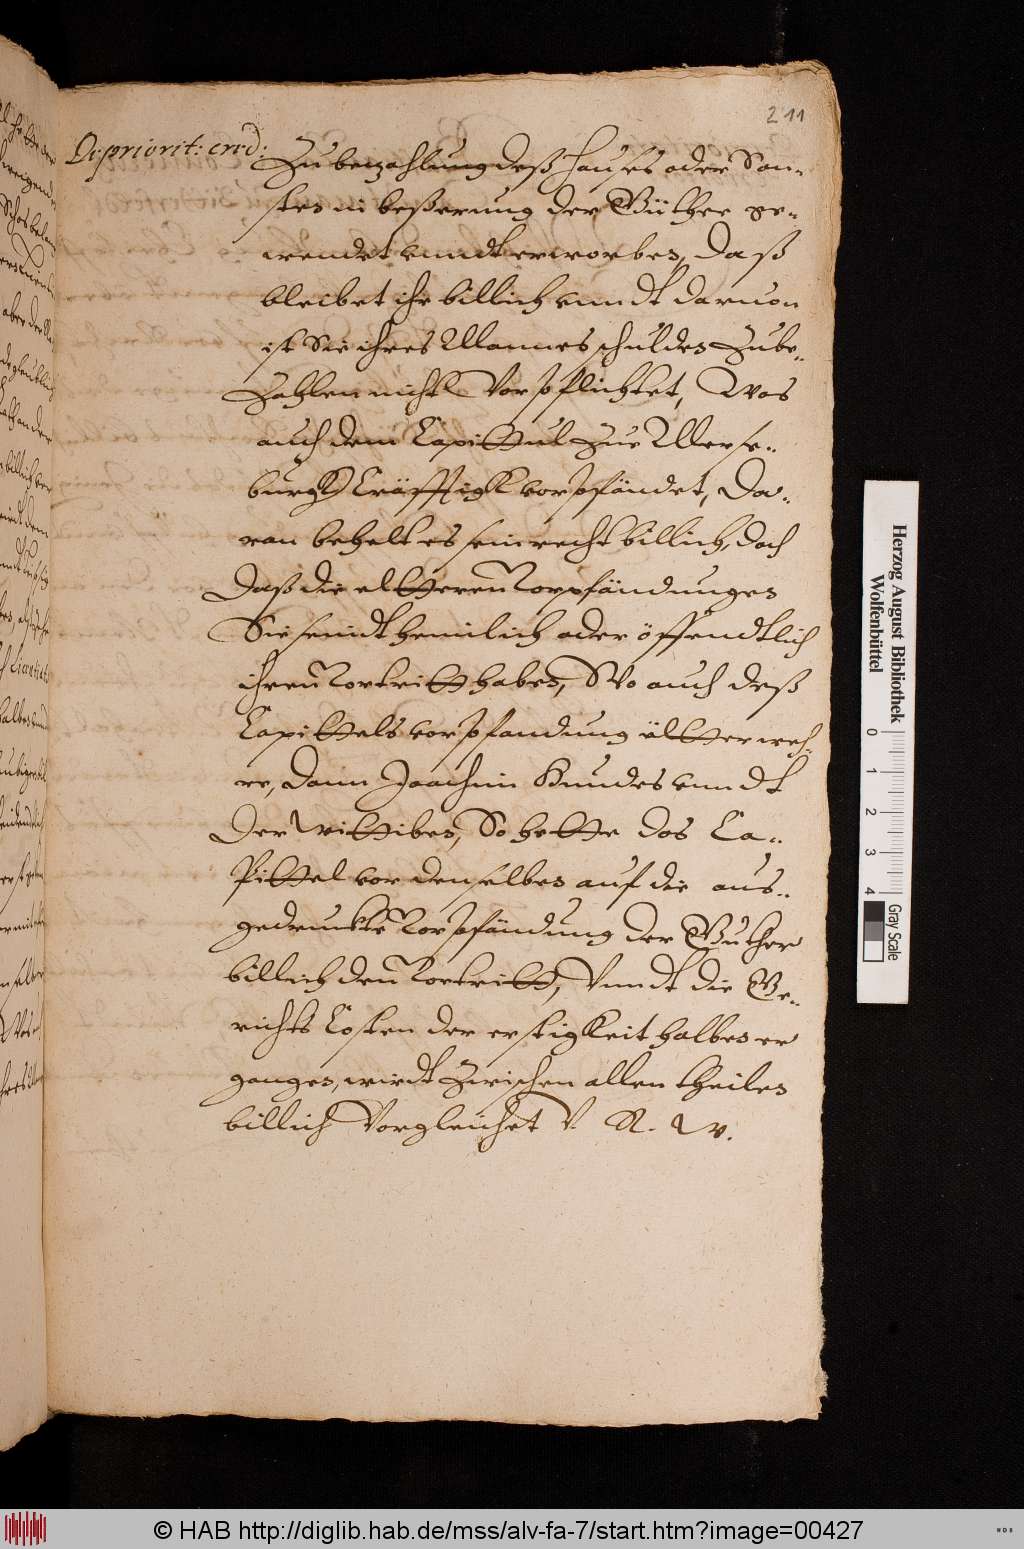 211
De priorit: cred:
Zu betzahlung deß Hauses oder Son-
sten in beßerung der Güther ge-
wendet vnndt erworben, Daß
bleibet ihr billich vnndt daruon
ist Sie ihres Mannes schulden Zube-
Zahlen nicht Vorpflichtet, Was
auch dem Capittul Zue Merse-
burgk Cräfftigk vorpfändet, Da-
ran behelt es sein recht billich, doch
Daß die eltteren Vorpfändungen
Sie seindt heimlich oder öffendtlich
ihren Vortritt haben, Wo auch deß
Capittels vorpfandung ältter weh-
re, Dann Joachim Kundes vnndt
Der Wittiben, So hette das Ca-
Pittel vor denselben auf die aus-
gedruckte Vorpfändung der Guther
billich den Vortritt, Vnndt die Ge-
richts Costen der erstigkeit halben er
gangen, wirdt Zwischen allen theilen
billich Vorgleichet V. R. W.
Herzog August Bibliothek
Wolfenbüttel
0 1 2 3 4
Gray Scale
© HAB http://diglib.hab.de/mss/alv-fa-7/start.htm?image=00427